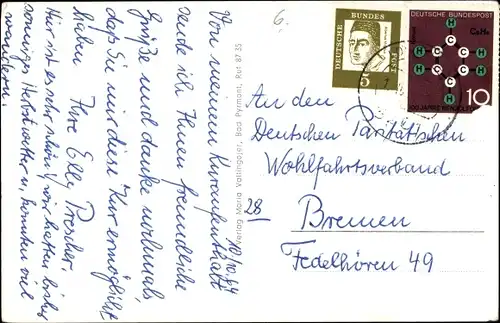 Von meinem Kuraufenthalt
sende ich Ihnen freundliche
Grüße und danke nochmals,
daß Sie mir diese Kur ermöglicht
haben. Ihre Elly
Hier ist es sehr schön, wir hatten bisher
sonniges Herbstwetter u. konnten viel
wandern.
10/10.64
Maria Bad Pyrmont, Ruf 87 35
6.
DEUTSCHE BUNDESPOST
5
DEUTSCHE BUNDESPOST
C₆H₆
H H H H H H
C C C C C C
100 JAHRE BENZOLFORMEL
10
An den
Deutschen Parität'schen
Wohlfahrtsverband
28
Bremen
Fedelhören 49